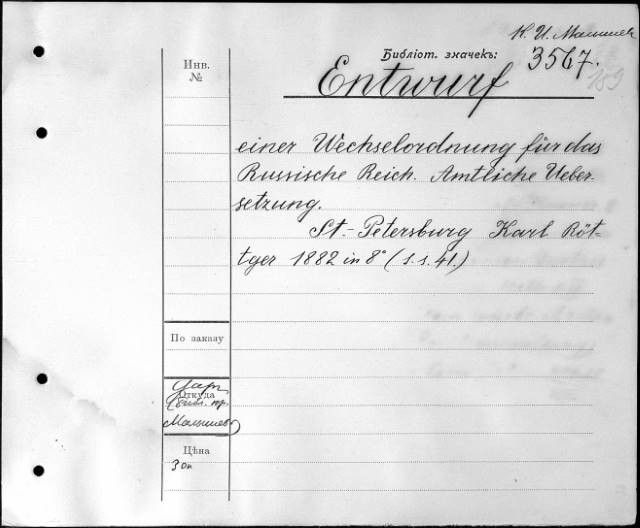 К. И. Малышев
Библіот. значекъ: 3567.
159
Инв.
№
Entwurf
einer Wechselordnung für das
Russische Reich. Amtliche Ueber-
setzung.
St.-Petersburg Karl Röt-
tger 1882 in 8° (S.s. 41.)
По заказу
Откуда
Дар
библ. пр.
Малышева
Цѣна
30к